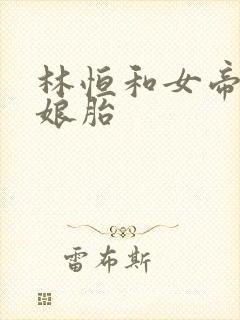 林恒和女帝
娘胎
雷布斯